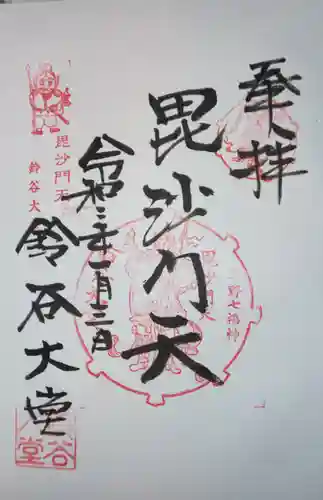 奉拝
毘沙門天
令和三年一月三日
鈴谷大堂
毘沙門天
鈴谷大
野七福神
谷堂